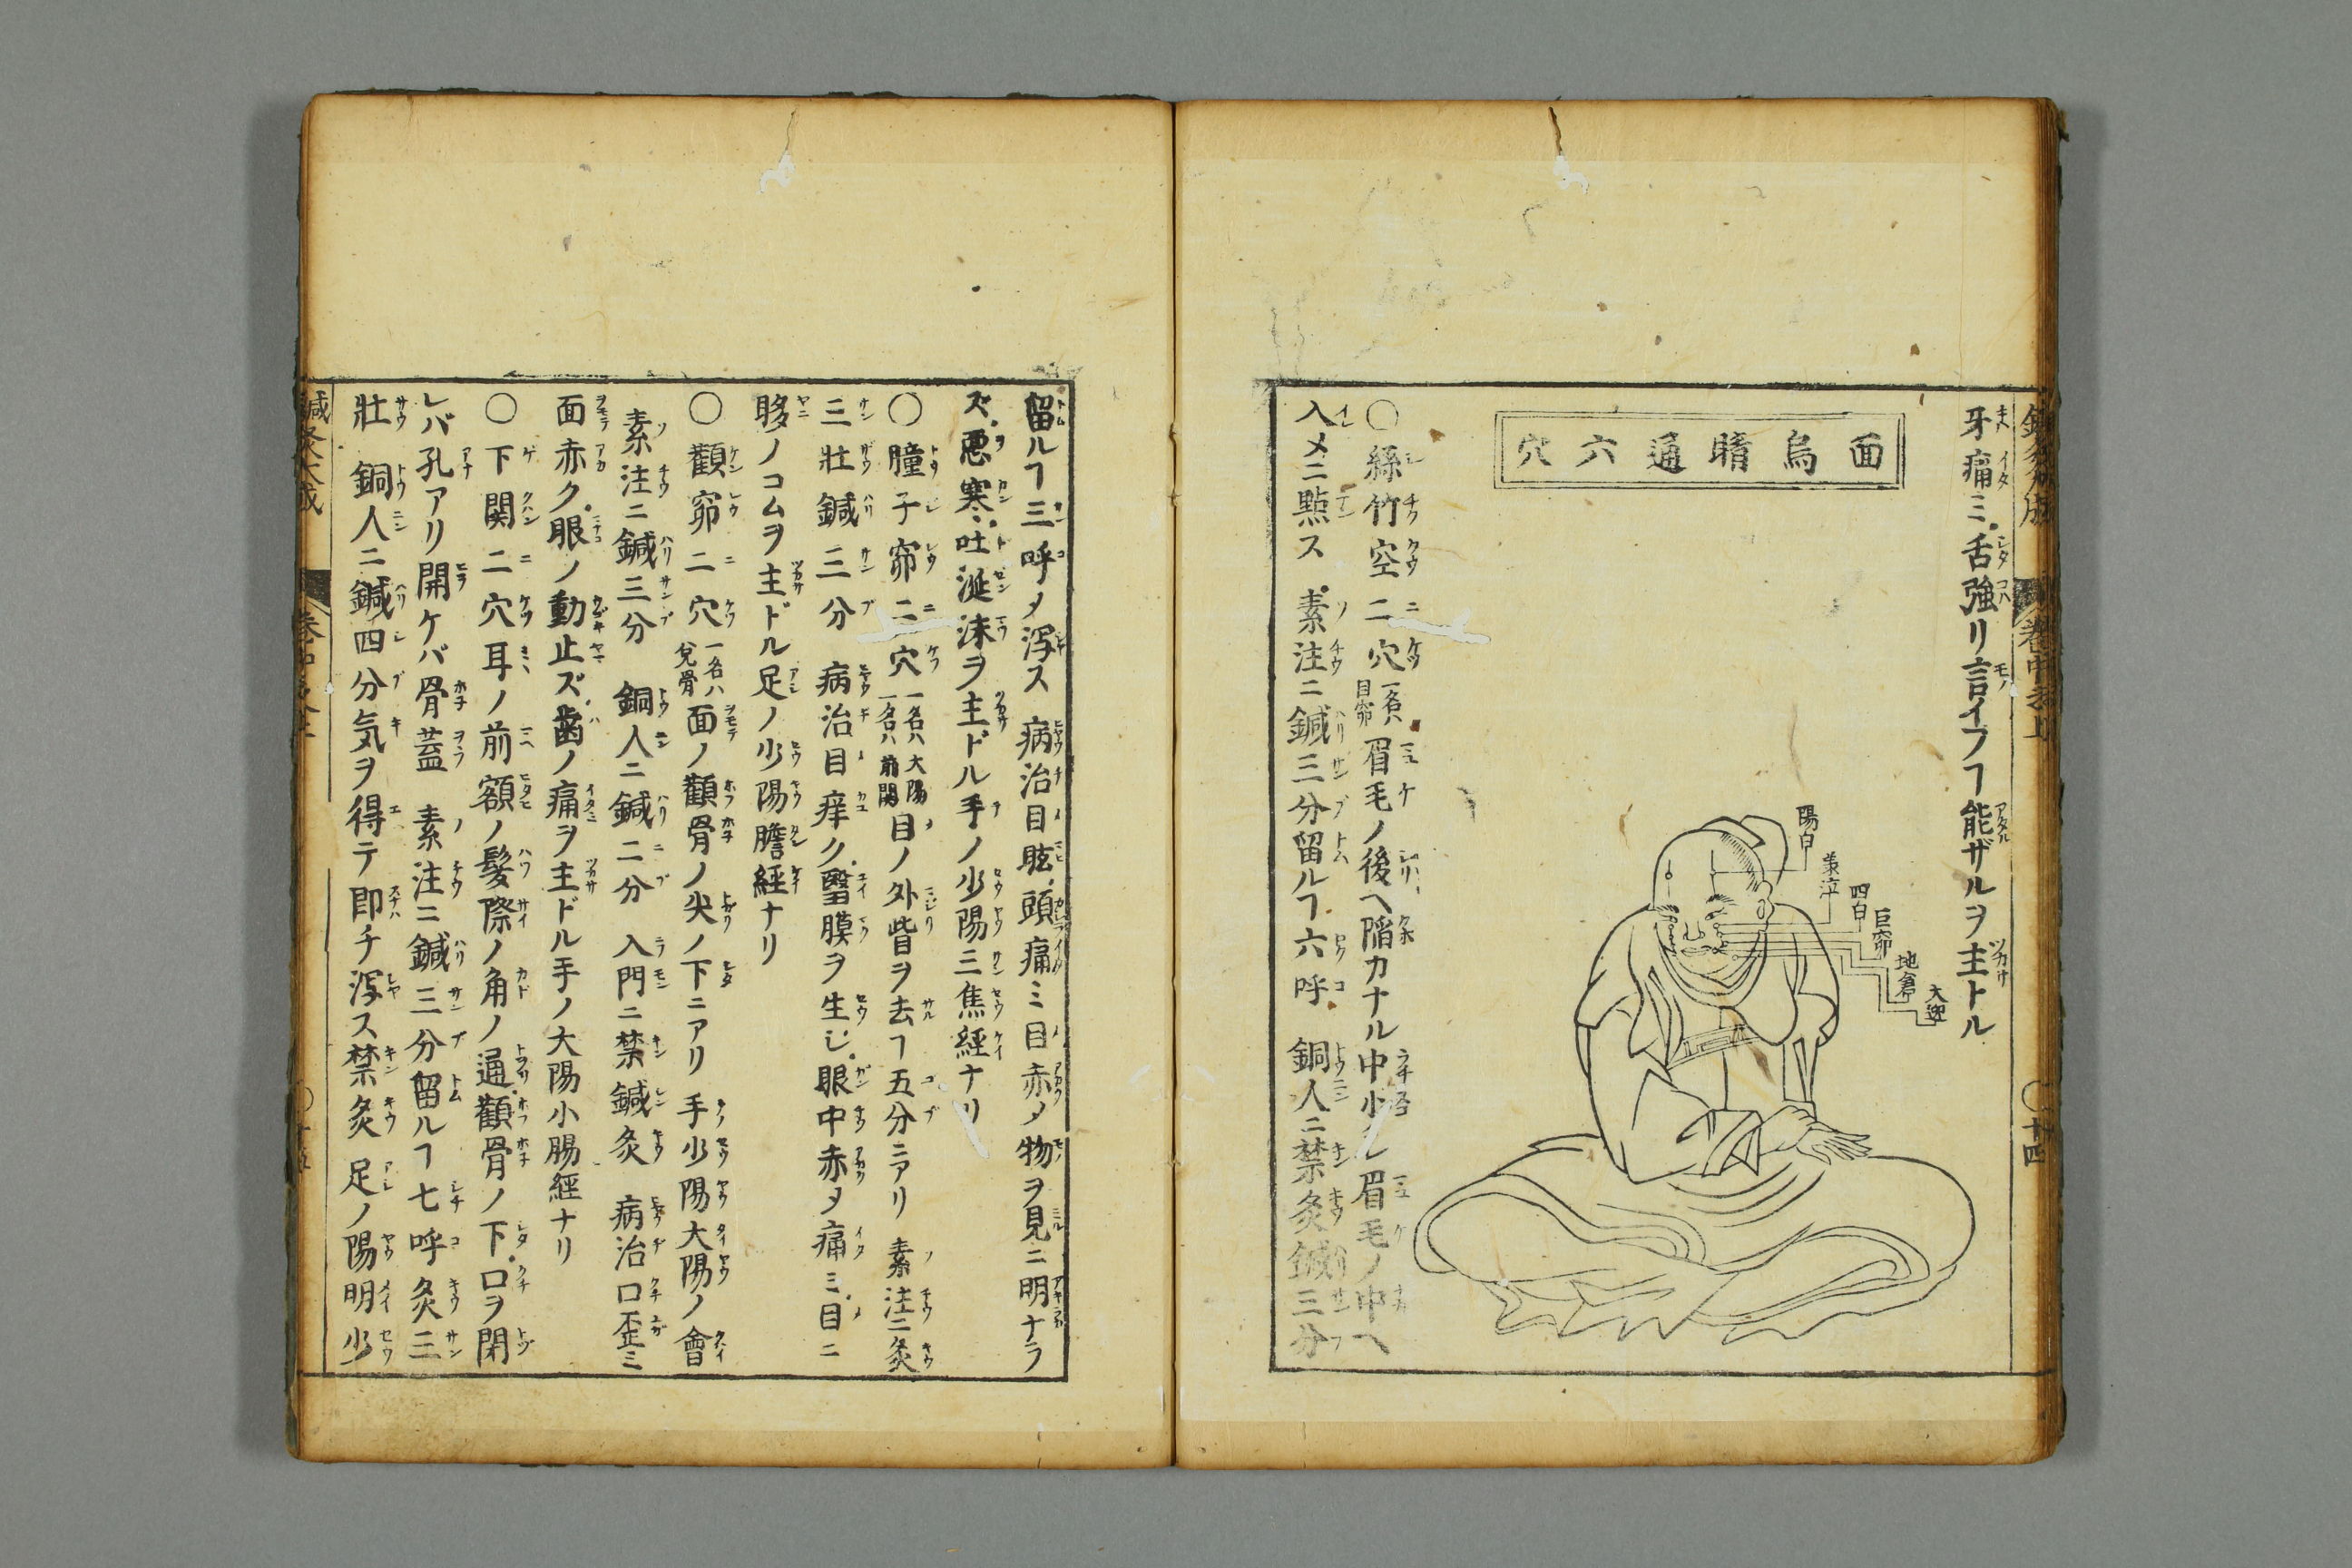 牙痛ミ舌強リ言イフヿ能ザルヲ主トル
面烏睛通六穴
陽白
承泣
四白
巨窌
地倉
大迎
〇絲竹空二穴一名ハ目窌眉毛ノ後ヘ陥カナル中
入メニ點ス 素注ニ鍼三分留ルヿ六呼 銅人ニ禁灸鍼三分
留ルヿ三呼メ泻ス 病治目眩頭痛ミ目赤メ物ヲ見ニ明ナラ
ズ悪寒吐涎沫ヲ主ドル手ノ少陽三焦経ナリ
〇瞳子窌二穴一名ハ大陽一名ハ前関目ノ外眥ヲ去ヿ五分ニアリ 素注ニ灸
三壮鍼三分 病治目痒ク翳膜ヲ生じ眼中赤タ痛ミ目ニ
眵ノコムヲ主ドル足ノ少陽膽経ナリ
〇顴窌二穴一名ハ兌骨面ノ顴骨ノ尖ノ下ニアリ 手少陽大陽ノ會
素注ニ鍼三分 銅人ニ鍼二分 入門ニ禁鍼灸 病治口歪ミ
面赤ク眼ノ動止ズ歯ノ痛ヲ主ドル手ノ大陽小腸経ナリ
〇下関二穴耳ノ前額ノ髪際ノ角ノ通顴骨ノ下口ヲ閉
レバ孔アリ開ケバ骨蓋 素注ニ鍼三分留ルヿ七呼灸三
壮 銅人ニ鍼四分気ヲ得テ即チ泻ス禁灸 足ノ陽明少